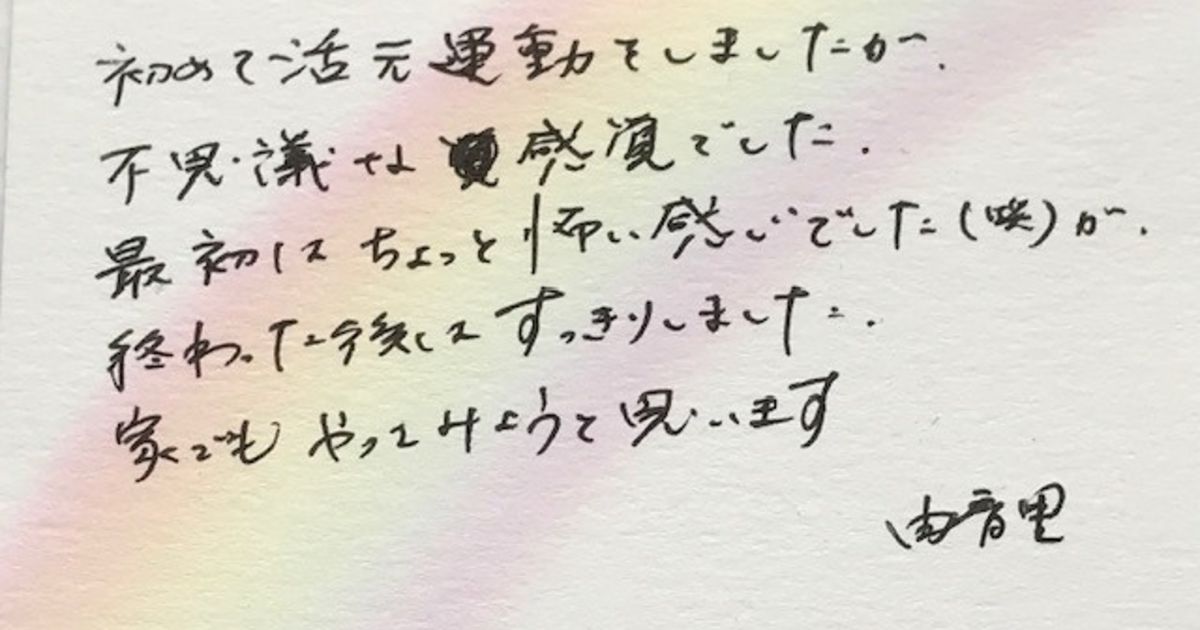 初めて活元運動をしましたが、
不思議な感覚でした。
最初はちょっと怖い感じでした(笑)が、
終わった後はすっきりしました。
家でもやってみようと思います
由音里